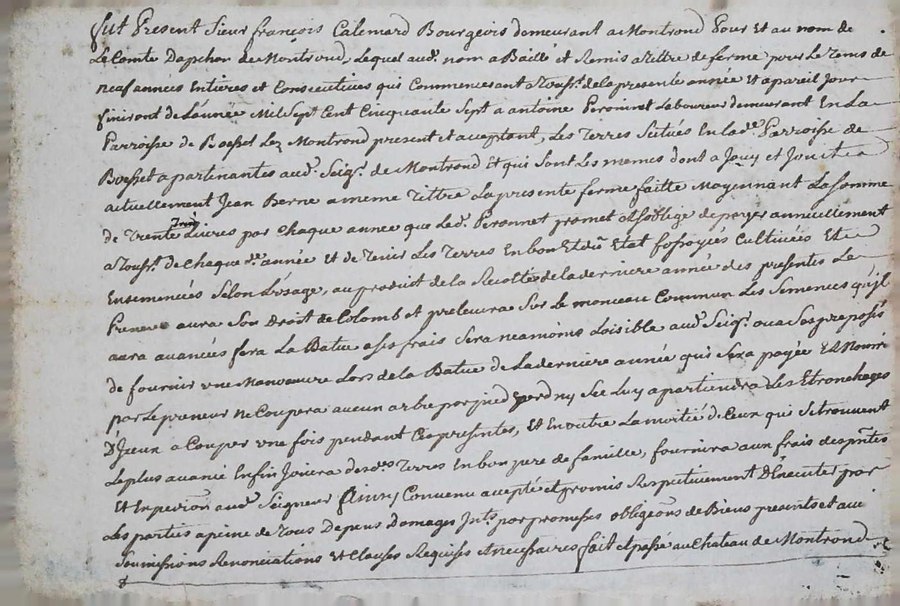 fut Present Sieur françois Calemard Bourgeois demeurant a Montrond Pour Et au nom de
Le Comte Dapchon de Montrond, Lequel aud. nom a Baillé et Remis a tittre de ferme pour Le Tems de
neuf années Entieres et Consecutives qui Commenceront a Touss.t de la presente année Et a pareil Jour
finiront de L'année Mil Sept Cent Cinquante Sept a antoine Peronnet Laboureur demeurant En La
Parroisse de Boesset Lez Montrond present et aceptant, Les Terres Scituées En lad.e Parroisse de
Boesset apartenantes aud. Seig.r de Montrond Et qui sont Les memes dont a Jouy et Jouit
actuellement Jean Berne a meme Tittre La presente ferme faitte Moyennant La Somme
de Trente Trois Livres par Chaque année que Led. Peronnet promet et s'oblige de payer annuellement
a Touss.t de Chaque d.e année Et de Tenir Les Terres En bon Et du Etat fossoyées Cultivées Et
Ensemencées Selon L'usage, au produit de la Recolte de la derniere année des presentes Le
Preneur aura Son droit de Colomb et prelevera Sur Le monceau Commun Les Semences qu'jl
aura avancées fera La Batue a ses frais Sera neamoins Loisible aud. Seig.r ou a Ses preposés
de fournir vne Manoeuvre Lors de la Batue de La derniere année qui Sera payée Et Nourrie
par Le preneur Ne Coupera aucun arbre par pied verd ny Sec Luy apartiendra Les Etronchages
D'Jceux a Couper vne fois pendant Ces presentes, Et En outre La moitié de Ceux qui se trouvent
Le plus avancé Enfin Jouira desd.es Terres En bon pere de famille, fournira aux frais des p.ntes
Et Expedition aud. Seigneur Ainsy Convenu accepté et promis Respectivement D'Executer par
Les parties a peine de Tous Depens Domages Jnts par promesses obligaõns de Biens presents et avi
Soumissions Renonciations Et Clauses Requises et necessaires fait et passé au Chateau de Montrond